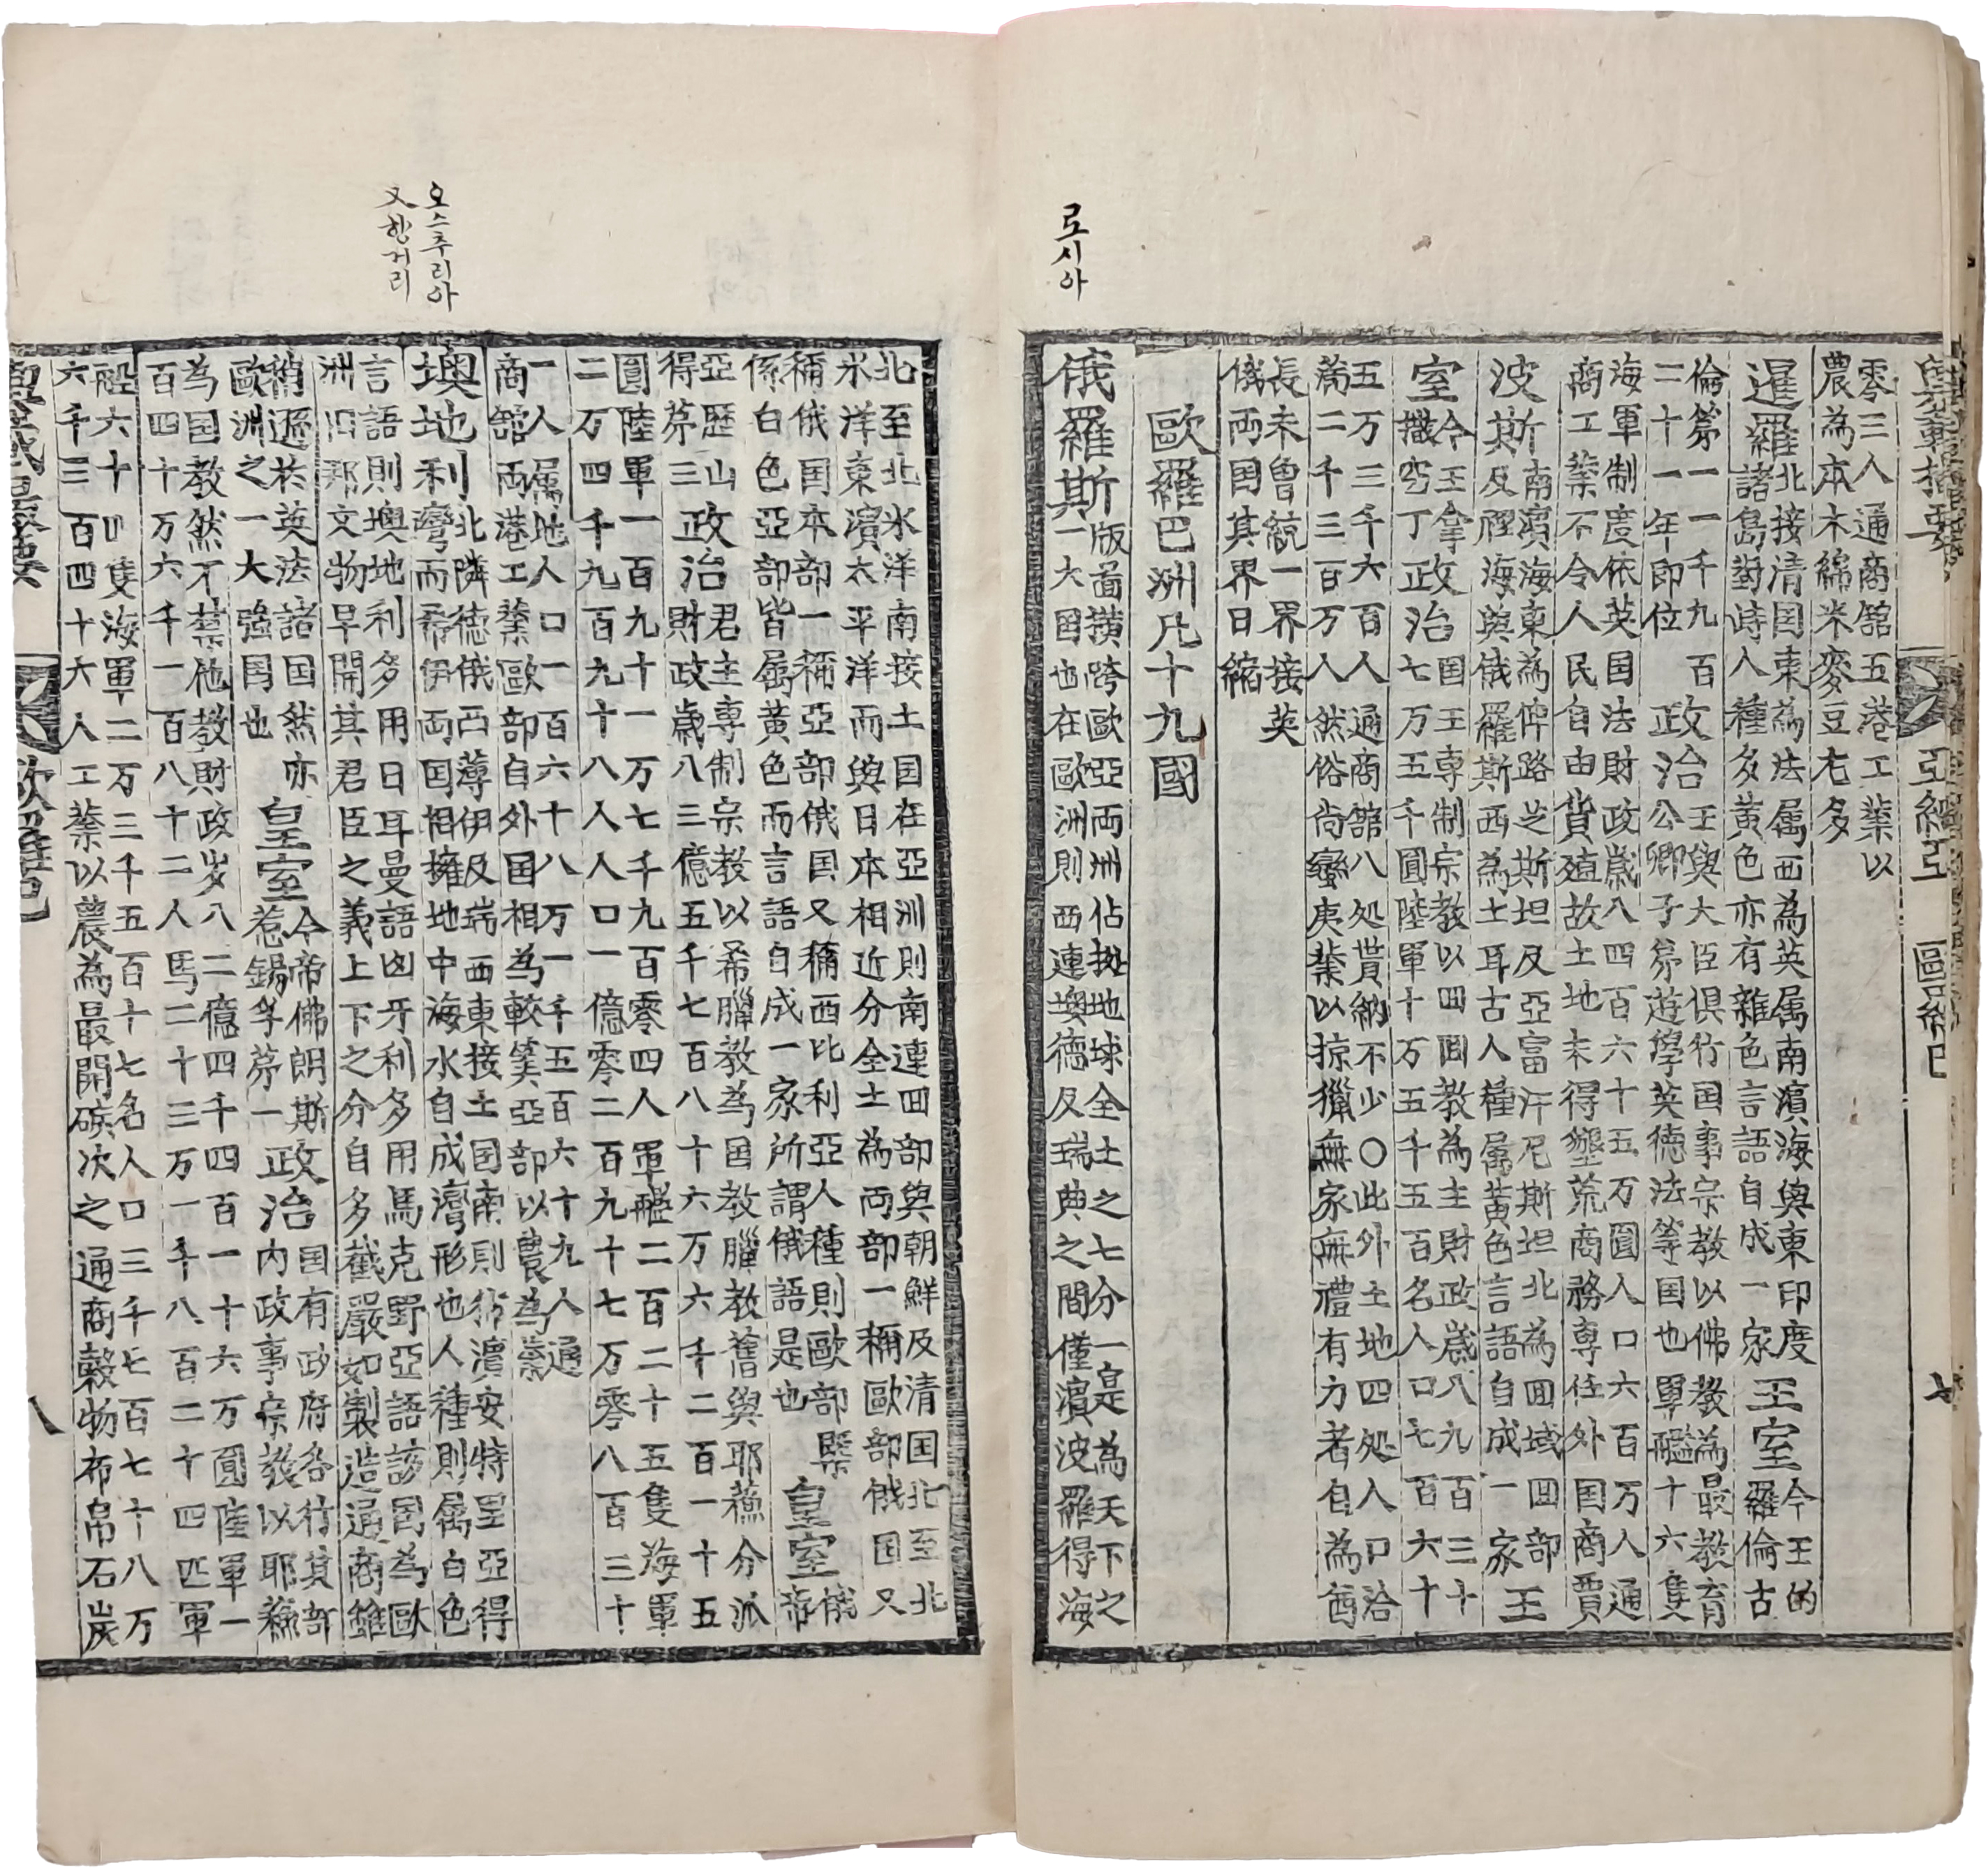 零三人通商舘五港工業以
農為本木綿米麥豆右多
暹羅
北接清国東為法属西為英属南濱海與東印度
諸島對峙人種多黃色亦有雜色言語自成一家
王室
今王的
羅倫古
倫第一一千九百
二十一年即位
政治
王與大臣俱行国事宗教以佛教為最教育
公卿子弟遊學英徳法等国也軍艦十六隻
海軍制度依英国法財政歲八四百六十五万圓人口六百万人通
商工業不令人民自由貨殖故土地未得墾荒商務専任外国商賈
波斯
南濱海東為俾路芝斯坦及亞富汗尼斯坦北為囬域囬部
及裡海與俄羅斯西為土耳古人種属黃色言語自成一家
王
室
今王拿
撒空丁
政治
国王専制宗教以囬囬教為主財政歲八九百三十
七万五千圓陸軍十万五千五百名人口七百六十
五万三千六百人通商舘八処貰納不少〇此外土地四処人口洽
滿二千三百万人然俗尚蠻庚業以掠獵無家無禮有力者自為酋
長未曽統一界接英
俄両国其界日縮
歐羅巴洲凡十九國
로시아
俄羅斯
版啚横跨歐亞両洲佔拠地球全土之七分一是為天下之
一大国也在歐洲則西連墺徳及瑞典之間僅濱波羅得海
北至北氷洋南接土国在亞洲則南連囬部與朝鮮及清国北至北
氷洋東濱太平洋而與日本相近分全土為両部一稱歐部俄国又
稱俄国本部一稱亞部俄国又稱西比利亞人種則歐部槩
係白色亞部皆属黃色而言語自成一家所謂俄語是也
皇室
俄
帝
亞歷山
得第三
政治
君主専制宗教以希臘教為国教臘教舊與耶蘓分派
財政歲八三億五千七百八十六万六千二百一十五
圓陸軍一百九十一万七千九百零四人軍艦二百二十五隻海軍
二万四千九百九十八人人口一億零二百九十七万零八百三十
一人属地人口一百六十八万一千五百六十九人通
商舘両港工業歐部自外国相為較筭亞部以農為業
오스추리아
又항거리
墺地利
北隣徳俄西薄伊及瑞西東接土国南則狢濱安特里亞得
灣而希伊両国相擁地中海水自成灣形也人種則属白色
言語則墺地利多用日耳曼語凶牙利多用馬克野亞語該国為歐
洲旧邦文物早開其君臣之義上下之分自多截嚴如製造通商雖
稍遜於英法諸国然亦
歐洲之一大強国也
皇室
今帝佛朗斯
惹錫孚第一
政治
国有政府各行其部
内政事宗教以耶蘓
為国教然不禁他教財政歲八二億四千四百一十六万圓陸軍一
百四十万六千一百八十二人馬二十三万一千八百二十四匹軍
船六十四隻海軍二万三千五百十七名人口三千七百七十八万
六千三百四十六人工業以農為最開礦次之通商穀物布帛石炭
八